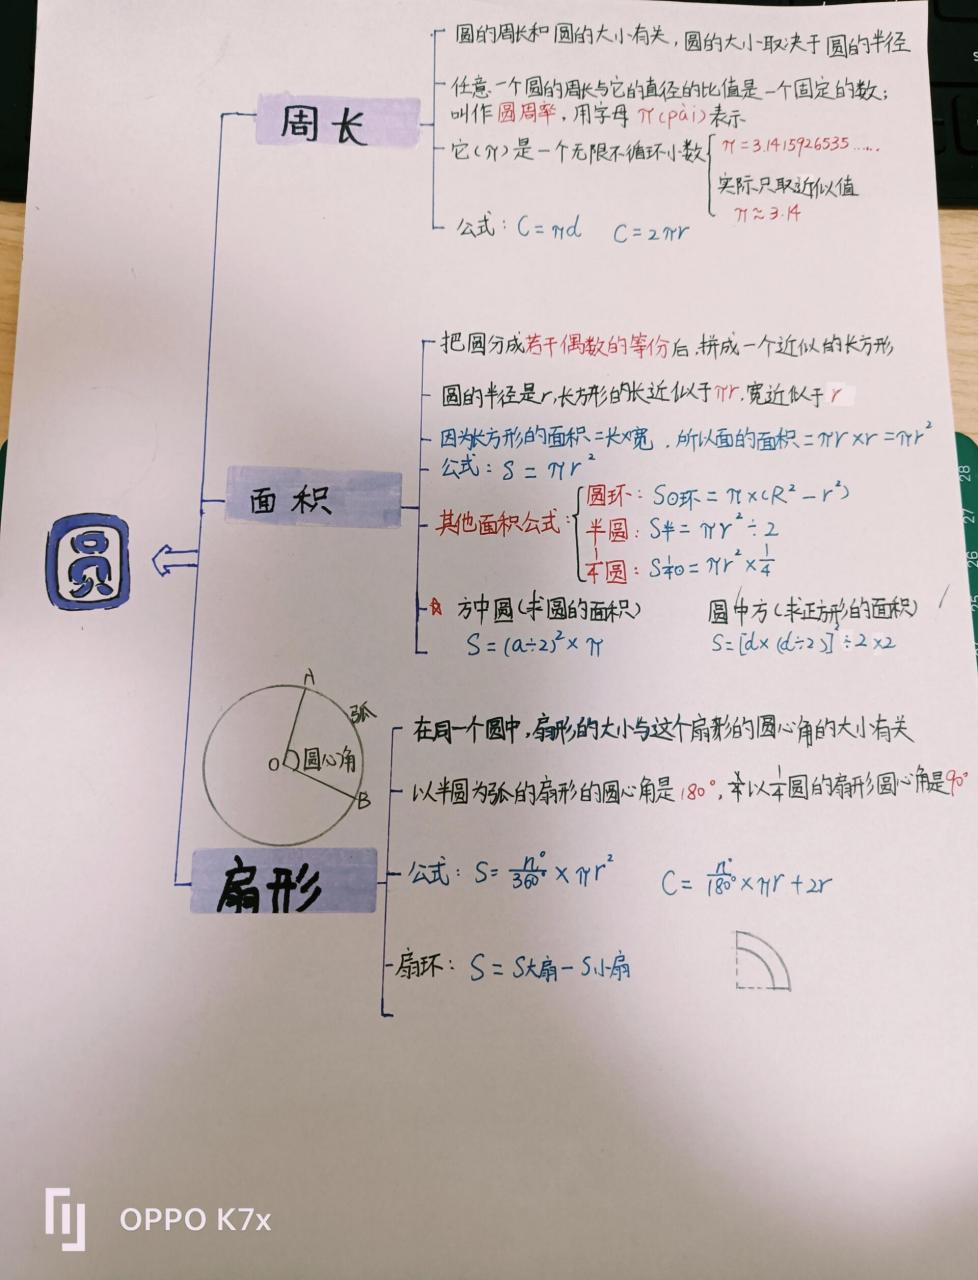 圆的周长和圆的大小有关，圆的大小取决于圆的半径
任意一个圆的周长与它的直径的比值是一个固定的数；
周长
叫作圆周率，用字母π(pài)表示
它(π)是一个无限不循环小数
π=3.1415926535……
实际只取近似值
π≈3.14
公式：C=πd C=2πr
把圆分成若干偶数的等份后，拼成一个近似的长方形
圆的半径是r，长方形的长近似于πr，宽近似于r
因为长方形的面积=长×宽，所以面的面积=πr×r=πr²
公式：S=πr²
面积
圆环：S◎环=π×(R²-r²)
其他面积公式：
半圆：S半=πr²÷2
1/4圆：S1/4○=πr²×1/4
圆
☆ 方中圆(求圆的面积) 圆中方(求正方形的面积)
S=(a÷2)²×π S=[d×(d÷2)]²÷2×2
A
弧
在同一个圆中，扇形的大小与这个扇形的圆心角的大小有关
O 圆心角
B
以半圆为弧的扇形的圆心角是180°，以1/4圆的扇形圆心角是90°
扇形
公式：S=n°/360°×πr² C=n°/180°×πr+2r
扇环：S=S大扇-S小扇
OPPO K7x
28
27
26
25